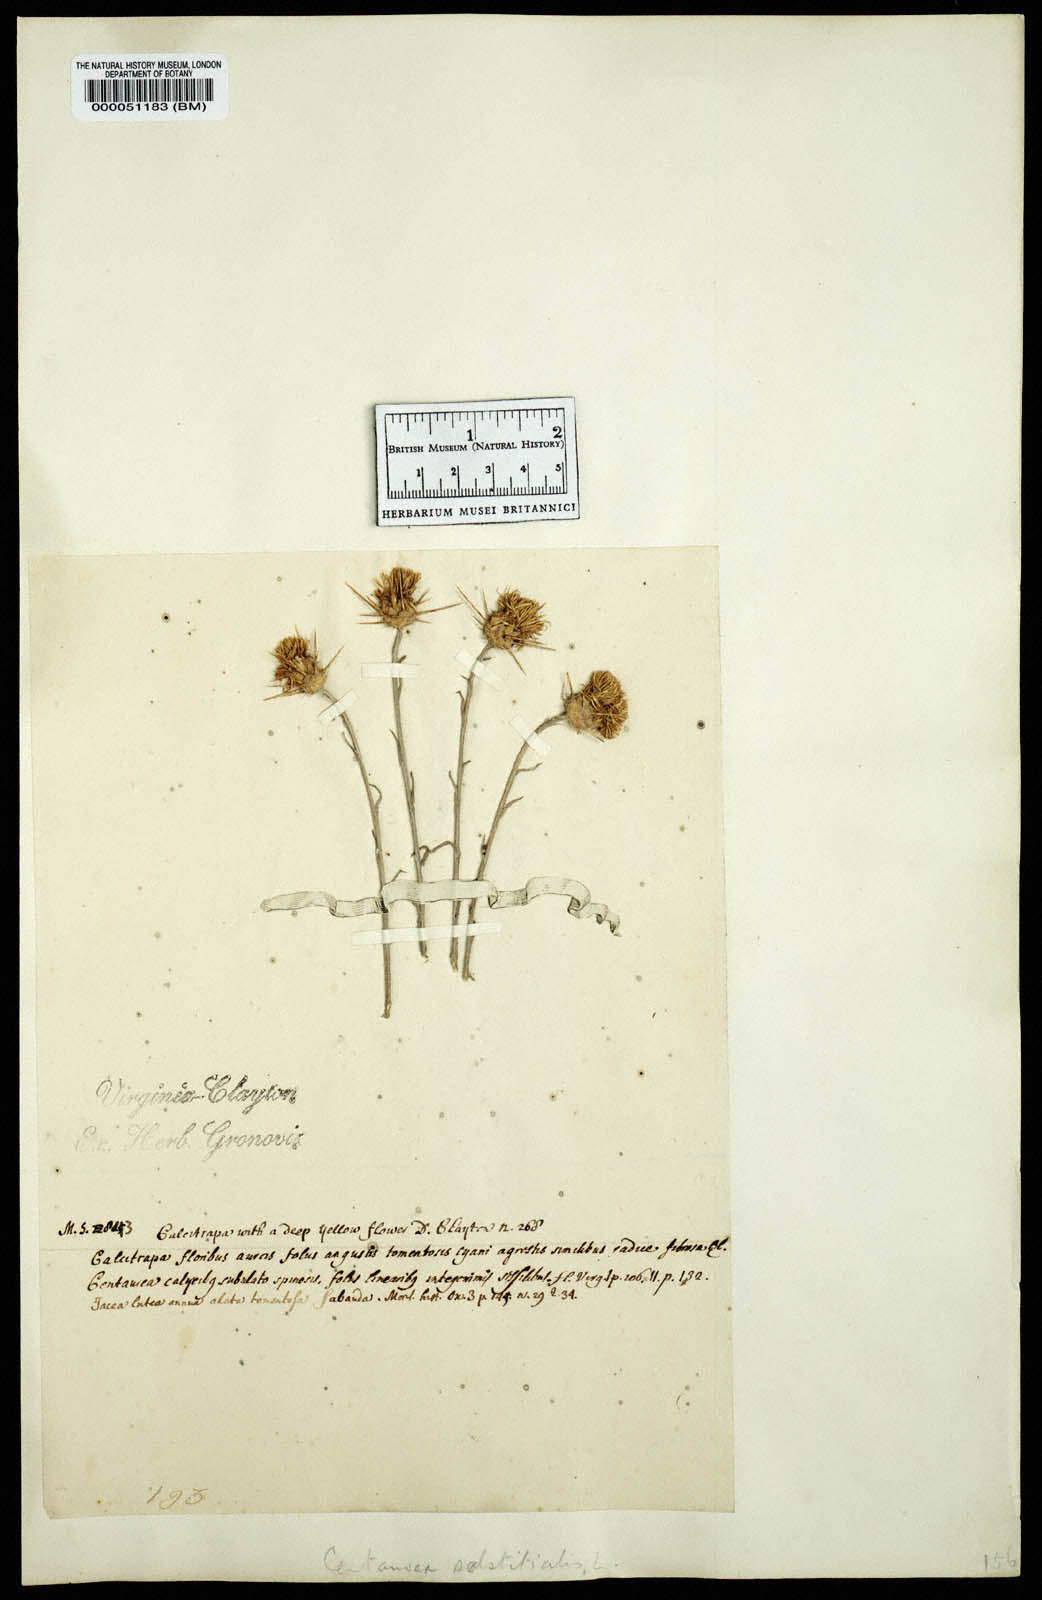 THE NATURAL HISTORY MUSEUM, LONDON
DEPARTMENT OF BOTANY
000051183 (BM)
1 2
BRITISH MUSEUM (NATURAL HISTORY)
1 2 3 4 5
HERBARIUM MUSEI BRITANNICI
Virginia Clayton
Ex. Herb. Gronovii
M. S. Calcitrapa with a deep yellow flower D. Clayton n. 268
Calcitrapa floribus aureis foliis angustis tomentosis Cyani agrestis similibus radice fibrosa Cl.
Centaurea calycibq subulato spinosis, foliis linearibq integerrimis sessilibus. fl. Virg. p. 106, II. p. 132.
Jacea lutea annua alato tomentosa Sabauda. Mor. hist. ox. 3 p. 144. n. 29 34.
193
Centaurea solstitialis, L.
156